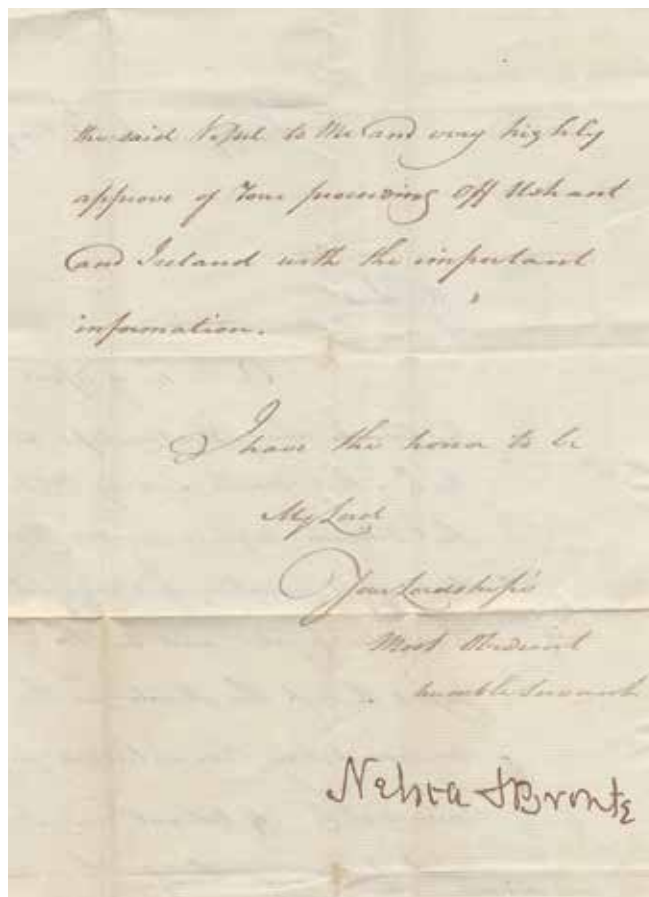 the said Vessel to Me and very highly
approve of Your proceeding Off Ushant
and Ireland with the important
information.
I have the honor to be
My Lord
Your Lordship's
Most Obedient
humble Servant
Nelson & Bronte